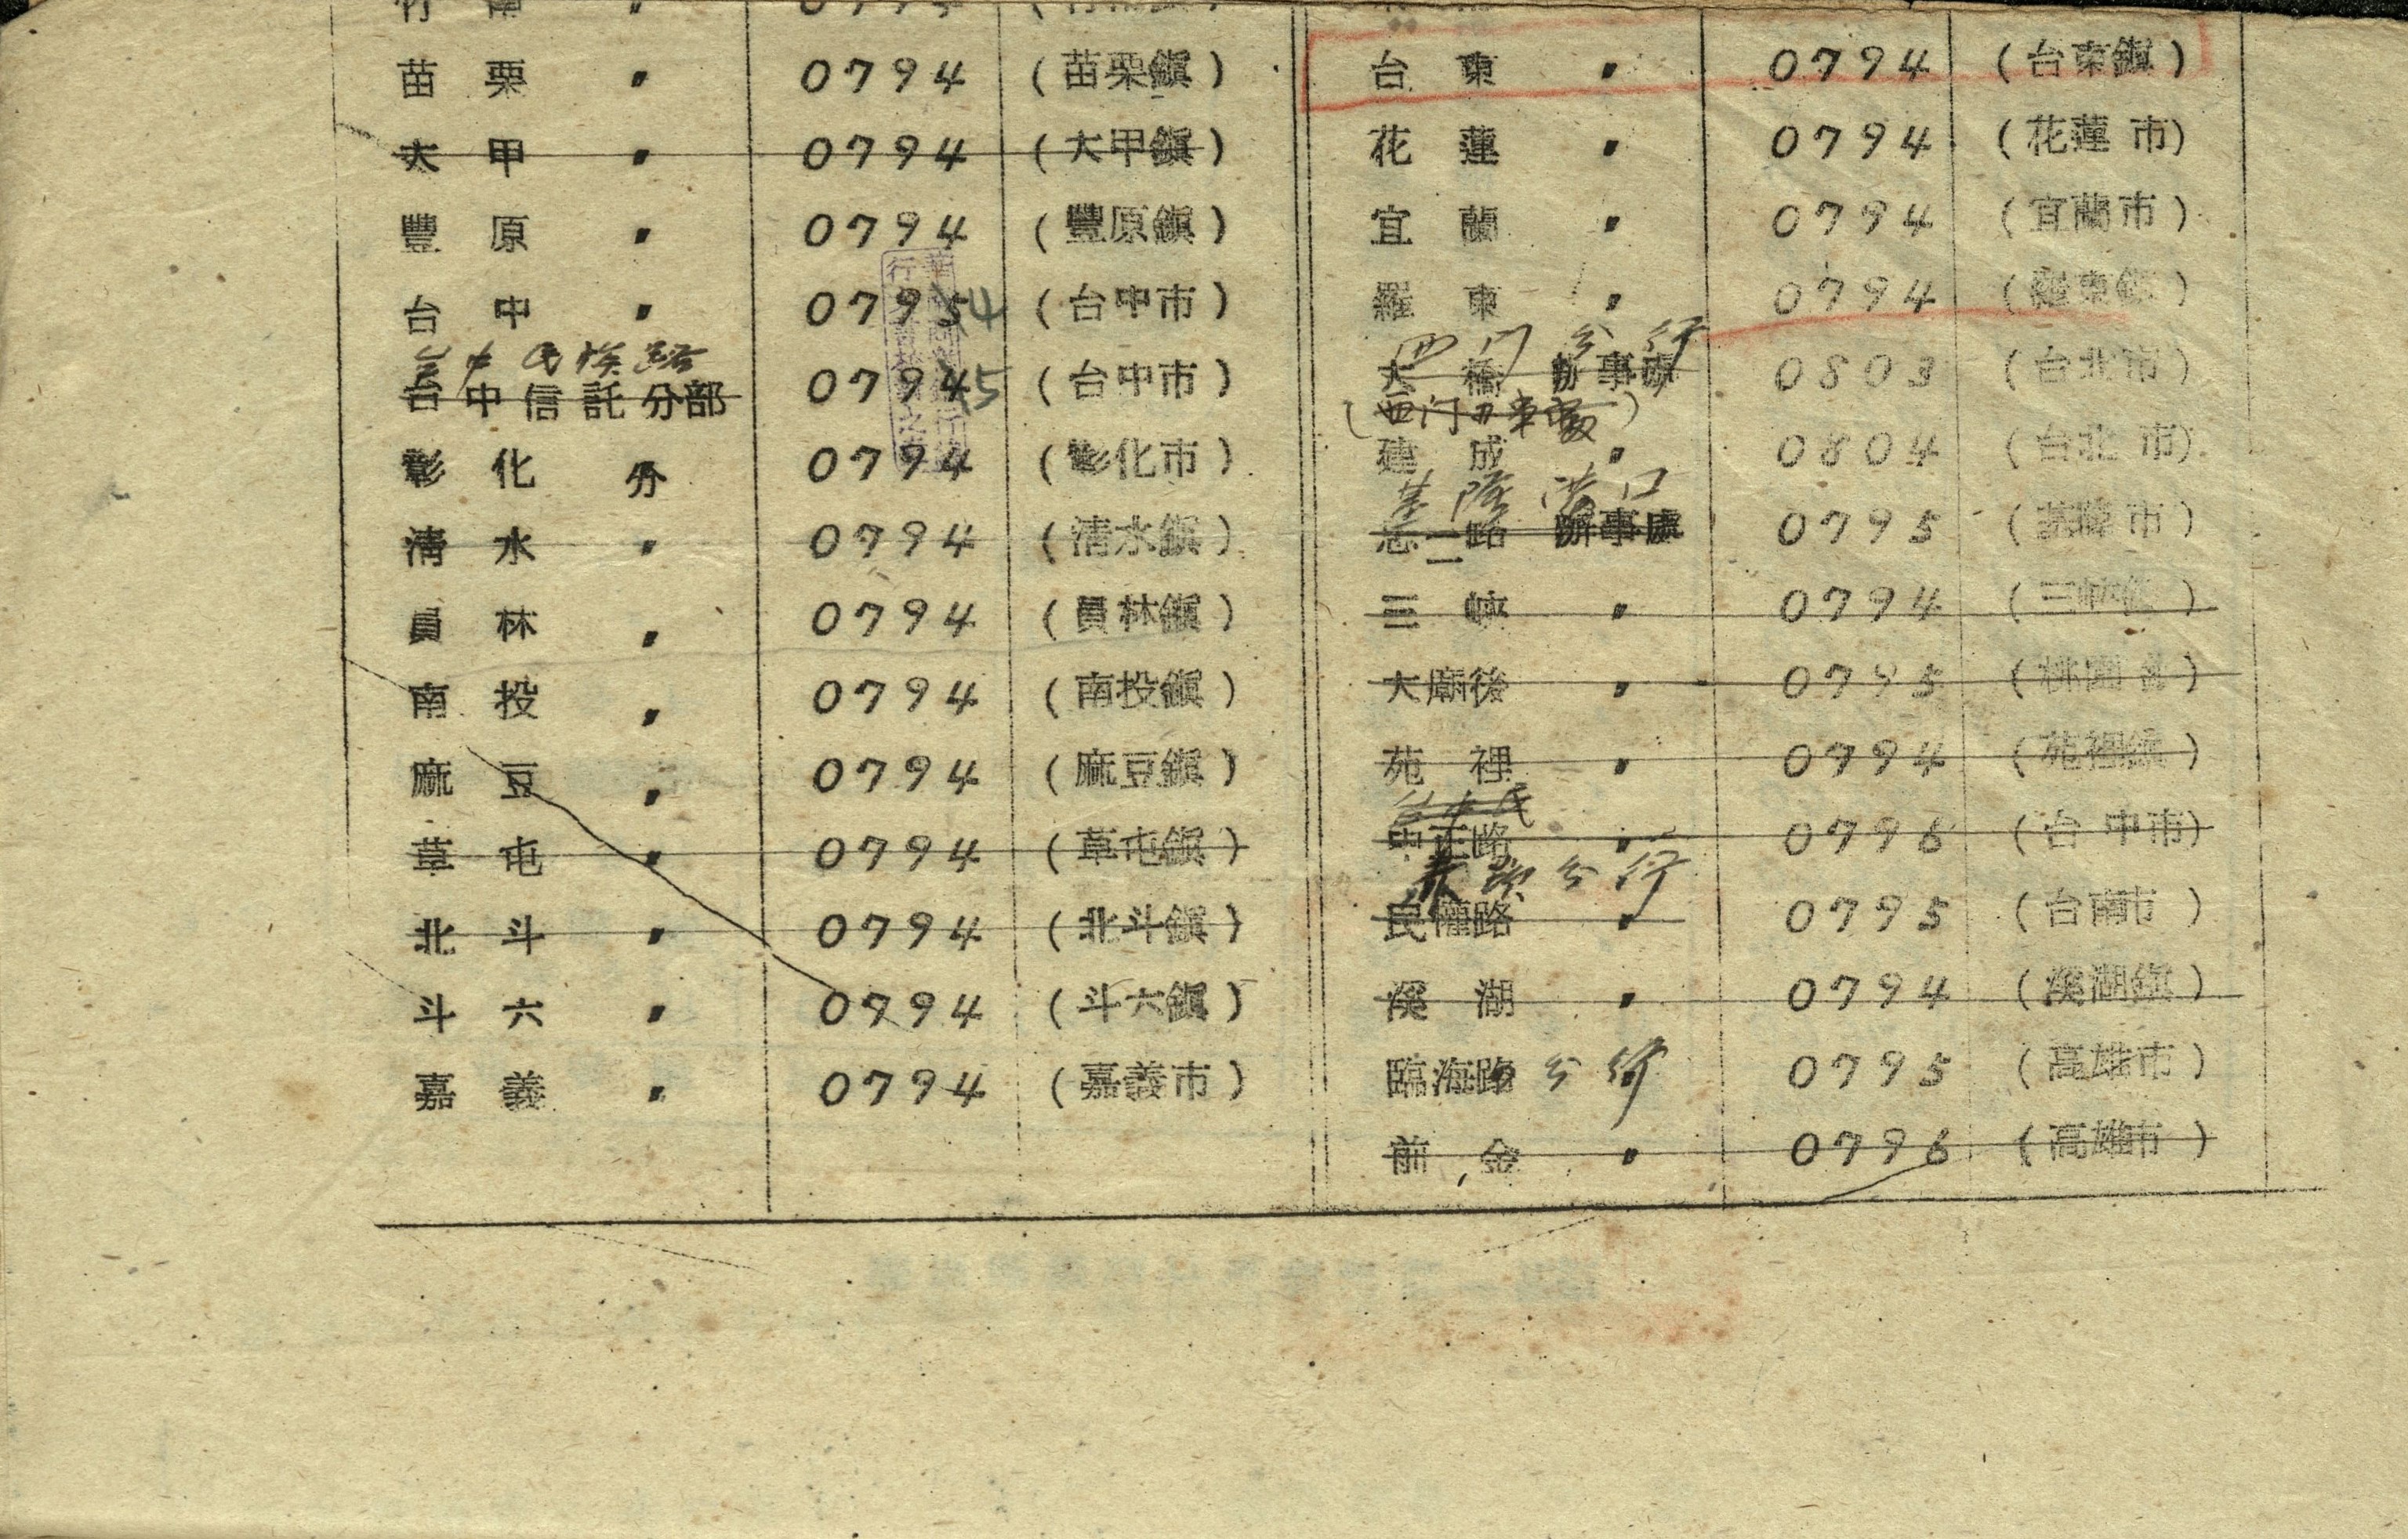 苗栗 〃 0794 (苗栗鎭)
大甲 〃 0794 (大甲鎭)
豐原 〃 0794 (豐原鎭)
台中 〃 07954 (台中市)
台中民族路
台中信託分部 07945 (台中市)
彰化 分 0794 (彰化市)
清水 〃 0794 (清水鎭)
員林 〃 0794 (員林鎭)
南投 〃 0794 (南投鎭)
麻豆 〃 0794 (麻豆鎭)
草屯 〃 0794 (草屯鎭)
北斗 〃 0794 (北斗鎭)
斗六 〃 0794 (斗六鎭)
嘉義 〃 0794 (嘉義市)
台東 〃 0794 (台東鎭)
花蓮 〃 0794 (花蓮市)
宜蘭 〃 0794 (宜蘭市)
羅東 〃 0794 (羅東鎭)
西门分行
大橋 辦事處 0803 (台北市)
建成 〃 0804 (台北市)
基隆港口
忠二路 辦事處 0795 (基隆市)
三峽 〃 0794 (三峽鎭)
大廟後 〃 0795 (桃園鎭)
苑裡 〃 0794 (苑裡鎭)
台中民
中正路 〃 0796 (台中市)
赤嵌分行
民權路 〃 0795 (台南市)
溪湖 〃 0794 (溪湖鎭)
臨海路分行 0795 (高雄市)
前金 〃 0796 (高雄市)